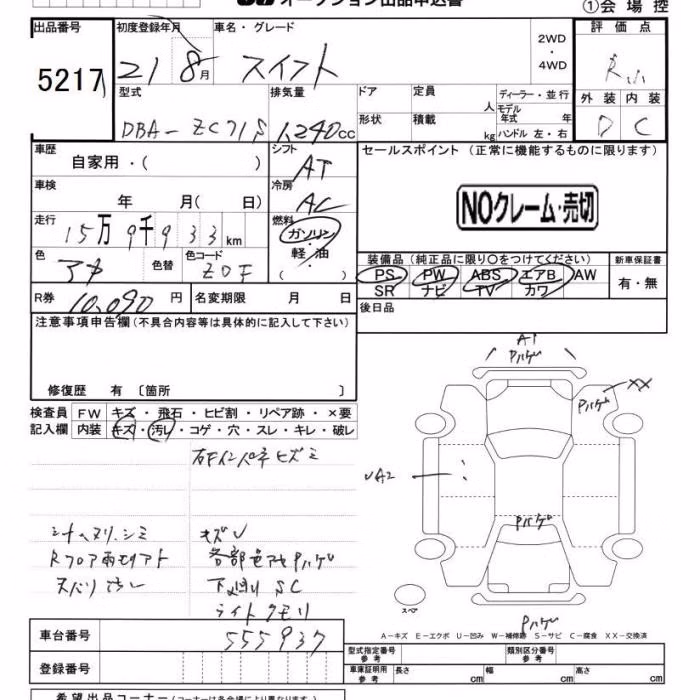 オークション出品申込書
①会場控
出品番号 5217
初度登録年月 21 8月
車名・グレード スイフト
2WD
・
4WD
評価点 R
外装 内装
D C
型式 DBA-ZC71S
排気量 1,240cc
ドア
形状
定員 人
積載 kg
ディーラー・並行
モデル年式 年
ハンドル 左・右
車歴 自家用・( )
シフト AT
セールスポイント (正常に機能するものに限ります)
NOクレーム・売切
車検 年 月( 日)
冷房 AC
走行 15万9千933km
燃料 ガソリン・軽・油・( )
色 アオ 色替
色コード ZDF
装備品 (純正品に限り○をつけてください)
新車保証書
PS PW ABS エアB AW
SR ナビ TV カワ
有・無
R券 10,090円
名変期限 月 日
後日品
注意事項申告欄(不具合内容等は具体的に記入して下さい)
修復歴 有 〔箇所 〕
検査員記入欄
FW キズ・飛石・ヒビ割・リペア跡・×要
内装 キズ・汚レ・コゲ・穴・スレ・キレ・破レ
右Fインパネヒズミ
シートヌリ、シミ キズ
Rフロア雨モリアト 各部色アセPハゲ
スバリ 下廻りSC
ライトクモリ
A1
Pハゲ
Pハゲ XX
A2
Pハゲ
スペ
Pハゲ
A-キズ E-エクボ U-凹み W-補修跡 S-サビ C-腐食 XX-交換済
車台番号 555937
型式指定番号 参考
類別区分番号 参考
登録番号
車庫証明用 参考 長さ cm 幅 cm 高さ cm
希望出品コーナー(コーナーは各会場により異なります)